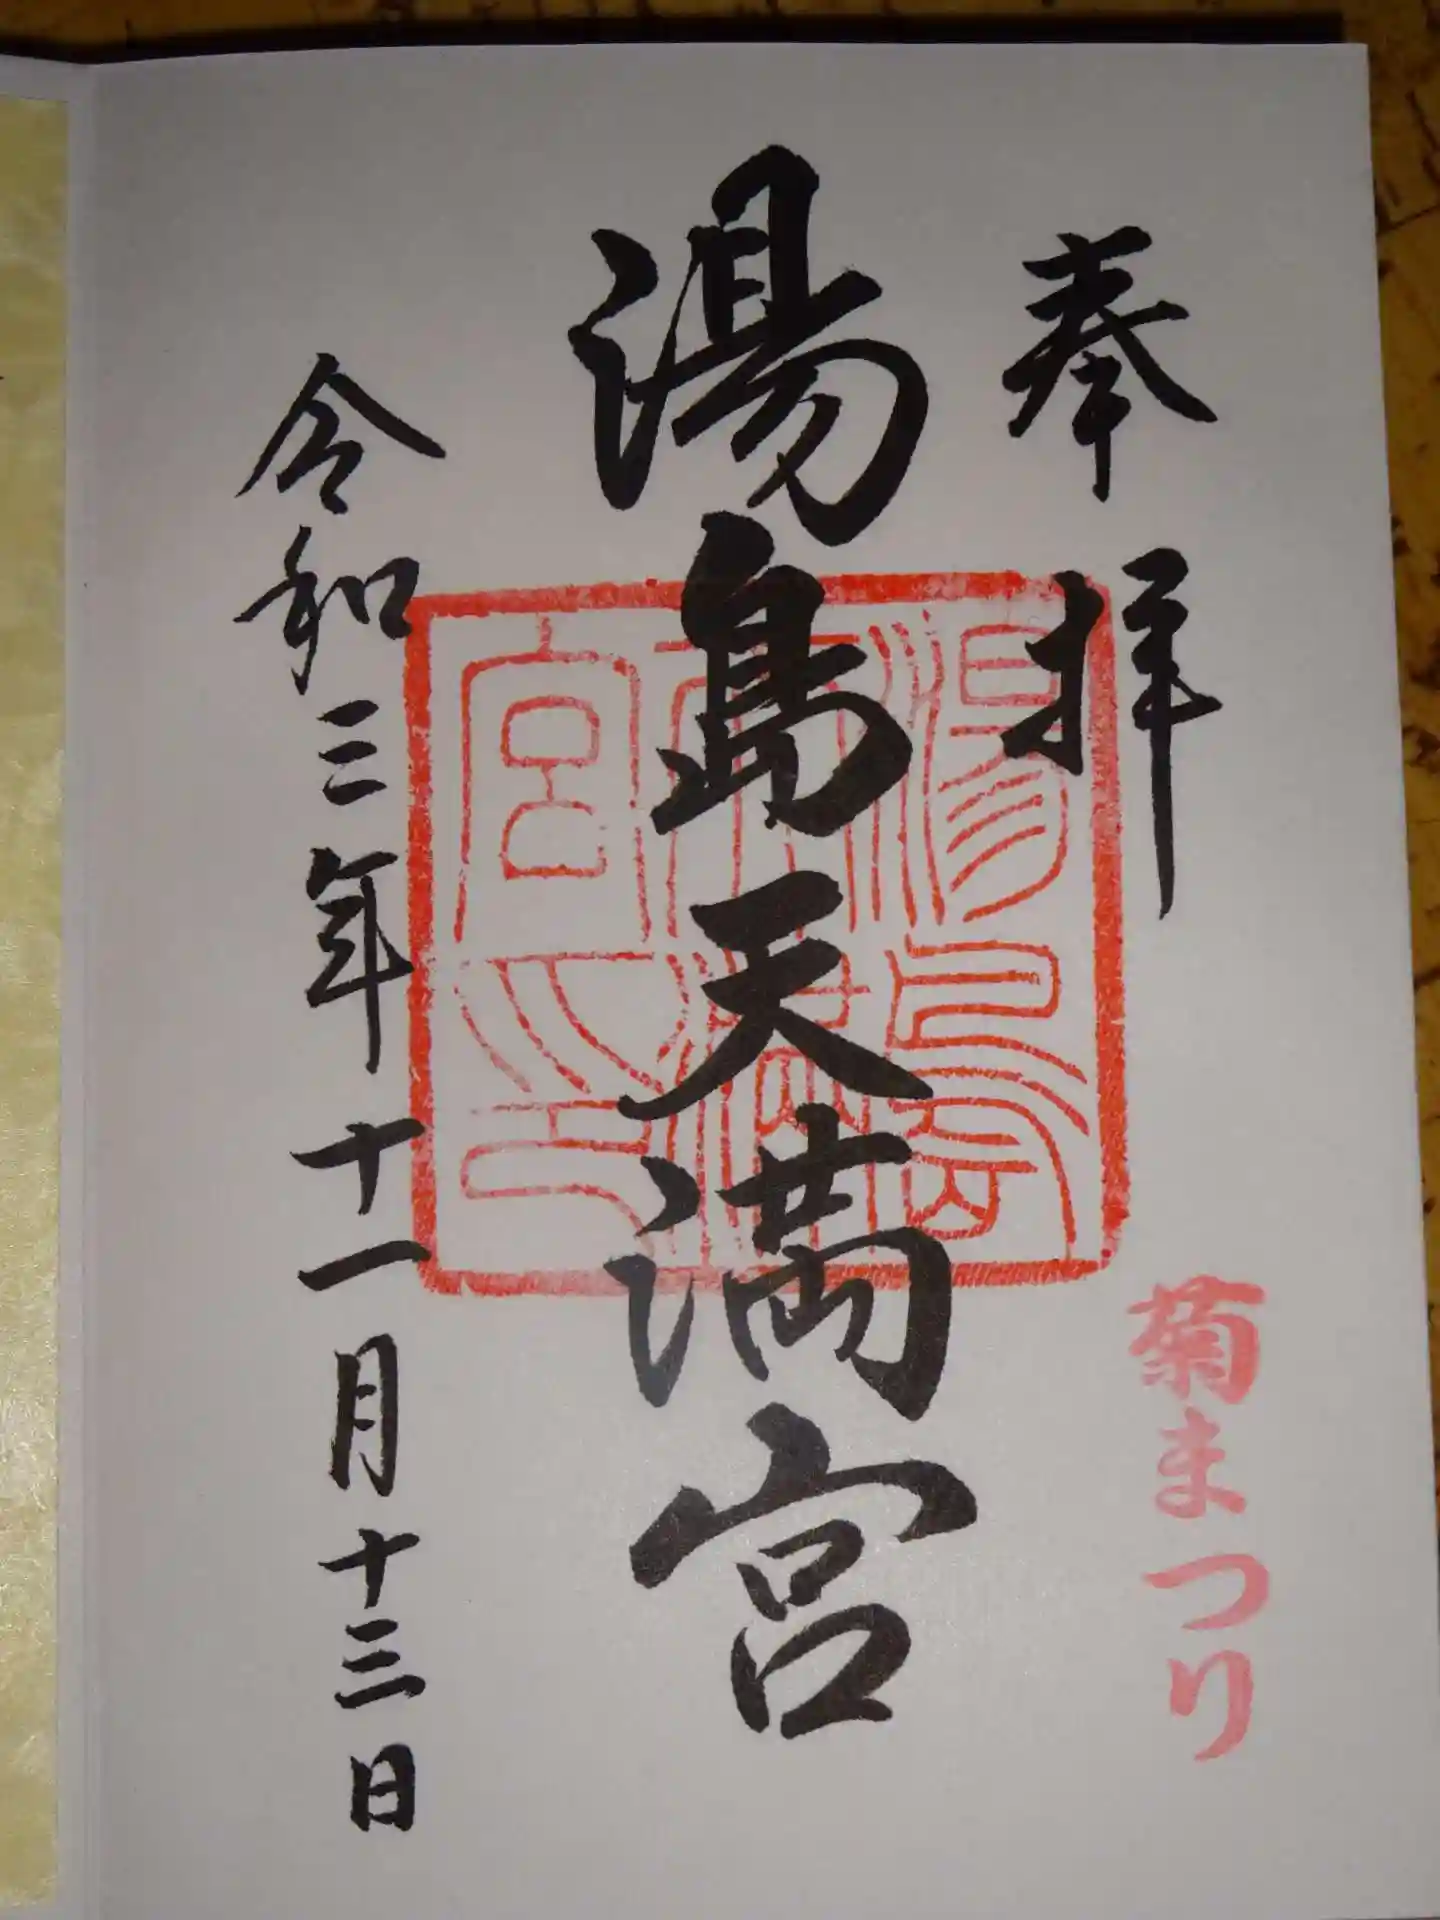 奉拝
菊まつり
湯島天満宮
湯島天満宮印
令和三年十一月十三日